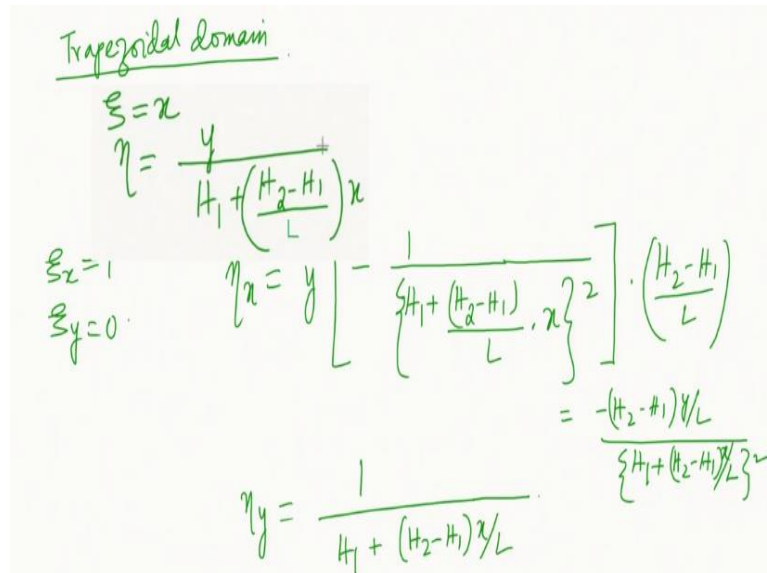 Trapezoidal domain.
ξ = x
η = y / (H₁ + ((H₂-H₁)/L) x)
ξx = 1
ξy = 0.
ηx = y [ - 1 / {H₁ + (H₂-H₁)/L . x}² ] . ((H₂-H₁)/L)
= -(H₂-H₁) y/L / {H₁ + (H₂-H₁) x/L}²
ηy = 1 / (H₁ + (H₂-H₁) x/L)